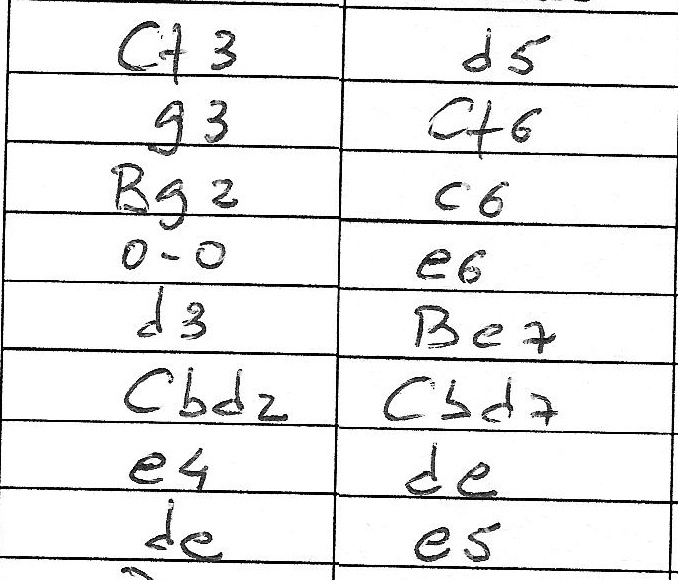 Cf3 d5
g3 Cf6
Bg2 c6
0-0 e6
d3 Be7
Cbd2 Cbd7
e4 de
de e5